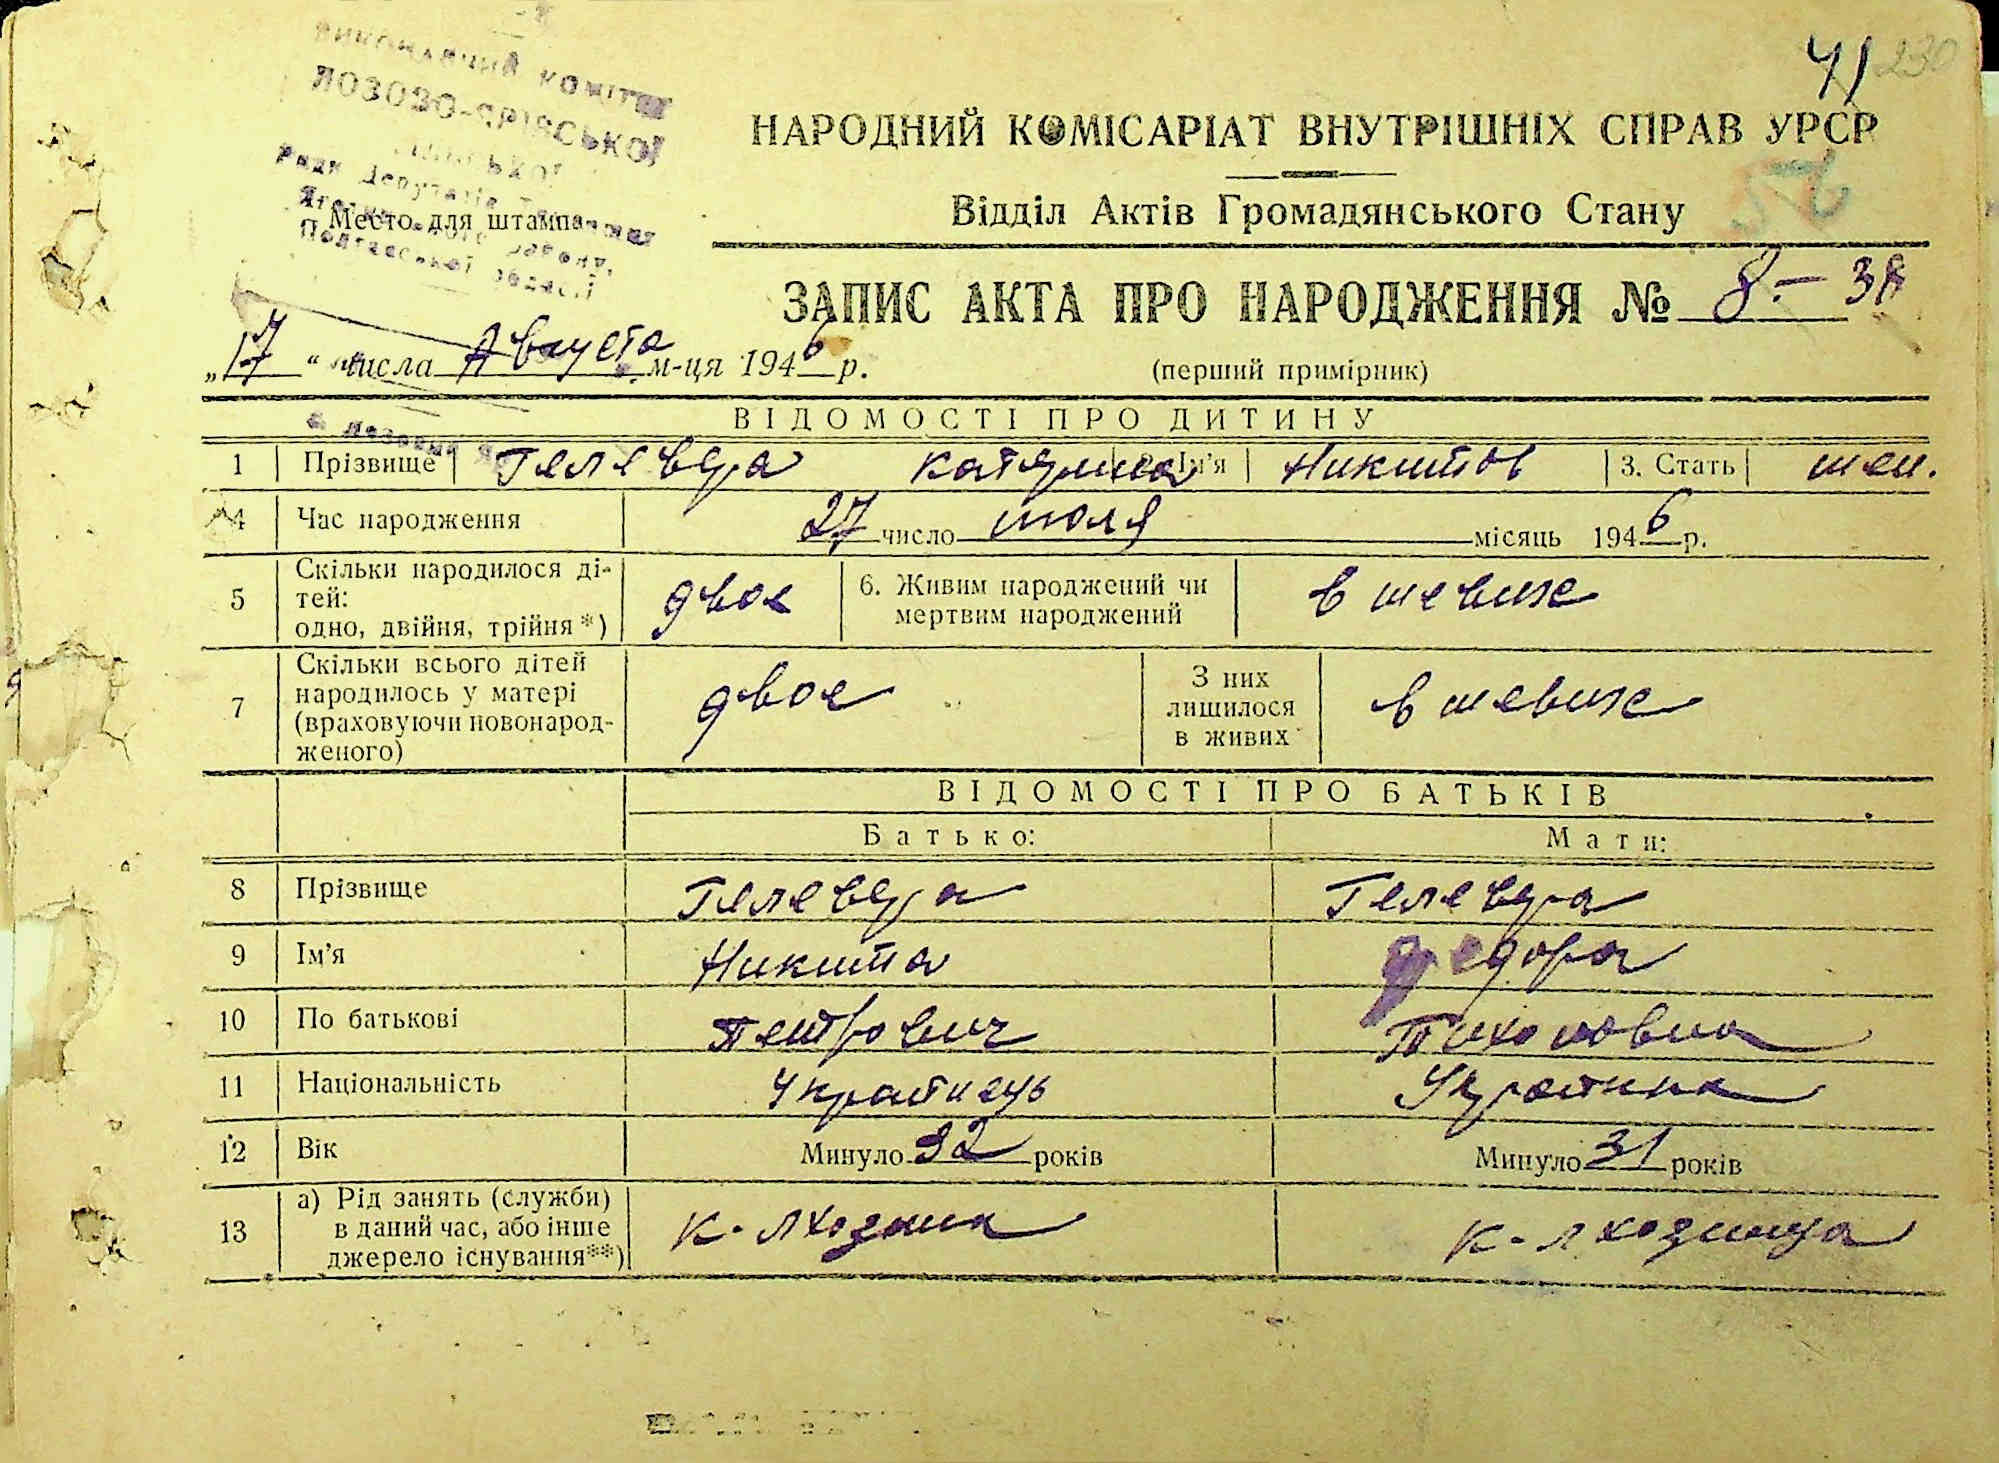 41 230
КОМІТЕТ
НАРОДНИЙ КОМІСАРІАТ ВНУТРІШНІХ СПРАВ УРСР
Ради Депутатів
Место для штампа
Відділ Актів Громадянського Стану
ЗАПИС АКТА ПРО НАРОДЖЕННЯ № 8.-
„17“ числа Августа м-ця 1946 р.
(перший примірник)
ВІДОМОСТІ ПРО ДИТИНУ
1 Прізвище Гелевера Катерина 2. Ім'я Никитов 3. Стать жен.
4 Час народження 27 число июля місяць 1946 р.
5 Скільки народилося ді-
тей:
одно, двійня, трійня*) двое 6. Живим народжений чи
мертвим народжений в живих
7 Скільки всього дітей
народилось у матері
(враховуючи новонарод-
женого) двое З них
лишилося
в живих в живих
ВІДОМОСТІ ПРО БАТЬКІВ
Батько: Мати:
8 Прізвище Гелевера Гелевера
9 Ім'я Никита Федора
10 По батькові Петрович Тихоновна
11 Національність
12 Вік Минуло 32 років Минуло 31 років
13 а) Рід занять (служби)
в даний час, або інше
джерело існування**) к-лхозник к-лхозница